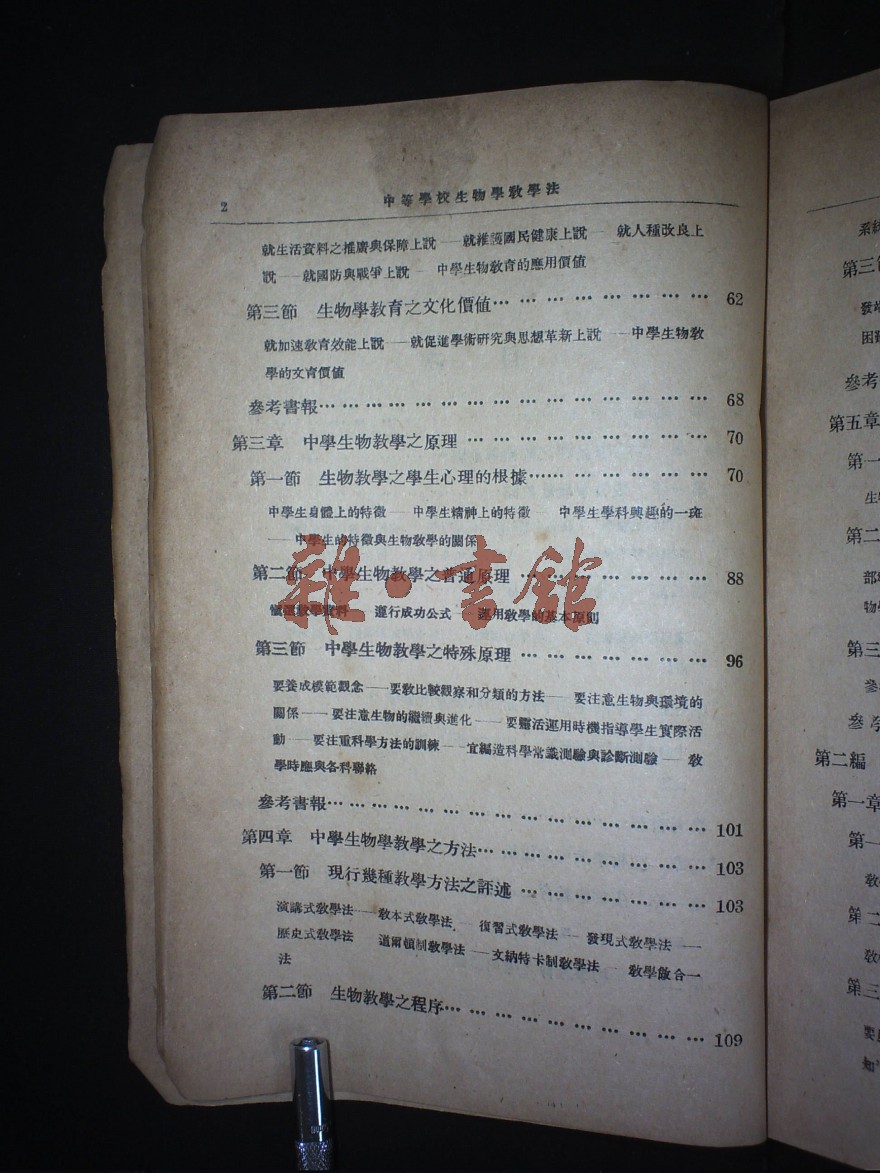 2
中等學校生物學敎學法
就生活資料之推廣與保障上說——就維護國民健康上說——就人種改良上
說——就國防與戰爭上說——中學生物敎育的應用價值
第三節 生物學敎育之文化價値………………………… 62
就加速敎育效能上說——就促進學術研究與思想革新上說——中學生物敎
學的文育價値
參考書報………………………………………… 68
第三章 中學生物敎學之原理………………………… 70
第一節 生物敎學之學生心理的根據…………………… 70
中學生身體上的特徵——中學生精神上的特徵——中學生學科興趣的一斑
——中學生的特徵與生物敎學的關係
第二節 中學生物敎學之普通原理…………………… 88
敎學資料——運行成功公式——運用敎學的基本原則
第三節 中學生物敎學之特殊原理…………………… 96
要養成模範觀念——要敎比較觀察和分類的方法——要注意生物與環境的
關係——要注意生物的繼續與進化——要靈活運用時機指導學生實際活
動——要注重科學方法的訓練——宜編造科學常識測驗與診斷測驗——敎
學時應與各科聯絡
參考書報………………………………………… 101
第四章 中學生物學敎學之方法……………………… 103
第一節 現行幾種敎學方法之評述…………………… 103
演講式敎學法——敎本式敎學法——復習式敎學法——發現式敎學法——
歷史式敎學法——道爾頓制敎學法——文納特卡制敎學法——敎學做合一
法
第二節 生物敎學之程序……………………………… 109
雜·書館
系統
第三節
發端
困難
參考
第五章
第一
生
第二
部
物學
第三
參
參考
第二編
第一章
第一
敎
第二
敎
第三
要
知